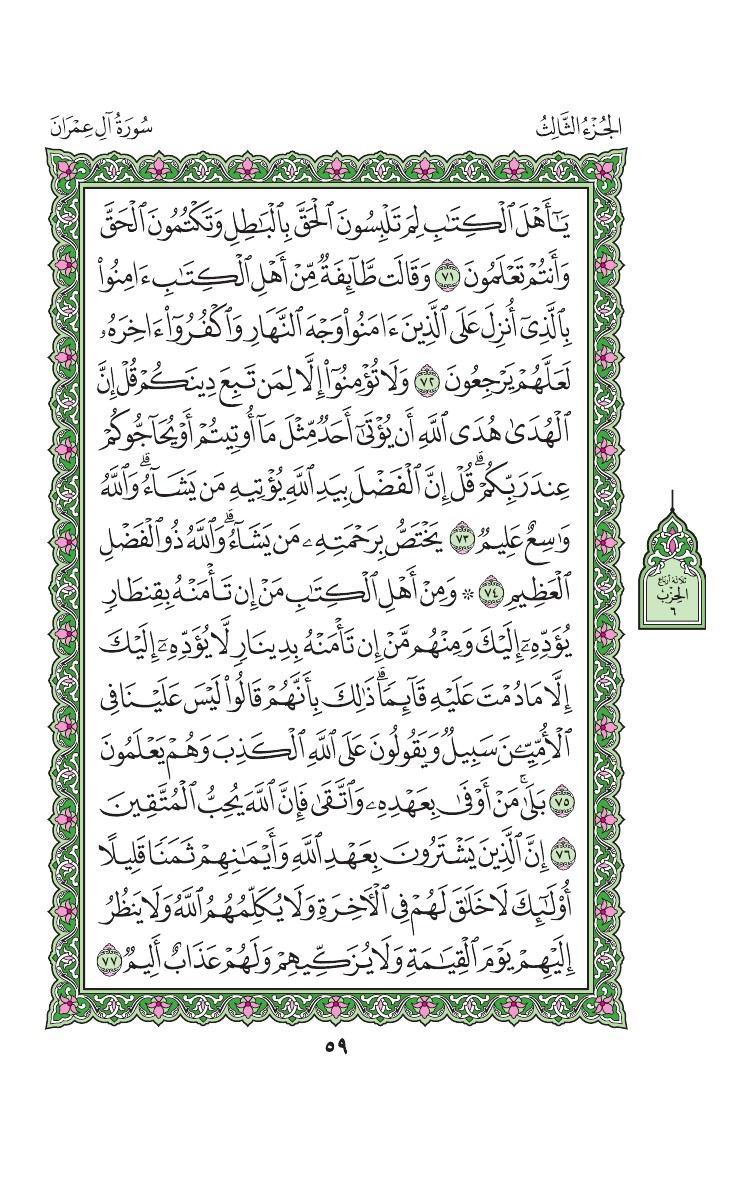 الجُزْءُ الثَّالِثُ
سُورَةُ آلِ عِمْرَانَ
يَـٰٓأَهْلَ ٱلْكِتَـٰبِ لِمَ تَلْبِسُونَ ٱلْحَقَّ بِٱلْبَـٰطِلِ وَتَكْتُمُونَ ٱلْحَقَّ
وَأَنتُمْ تَعْلَمُونَ ٧١ وَقَالَت طَّآئِفَةٌ مِّنْ أَهْلِ ٱلْكِتَـٰبِ ءَامِنُوا۟
بِٱلَّذِىٓ أُنزِلَ عَلَى ٱلَّذِينَ ءَامَنُوا۟ وَجْهَ ٱلنَّهَارِ وَٱكْفُرُوٓا۟ ءَاخِرَهُۥ
لَعَلَّهُمْ يَرْجِعُونَ ٧٢ وَلَا تُؤْمِنُوٓا۟ إِلَّا لِمَن تَبِعَ دِينَكُمْ قُلْ إِنَّ
ٱلْهُدَىٰ هُدَى ٱللَّهِ أَن يُؤْتَىٰٓ أَحَدٌ مِّثْلَ مَآ أُوتِيتُمْ أَوْ يُحَآجُّوكُمْ
عِندَ رَبِّكُمْ ۗ قُلْ إِنَّ ٱلْفَضْلَ بِيَدِ ٱللَّهِ يُؤْتِيهِ مَن يَشَآءُ ۗ وَٱللَّهُ
وَٰسِعٌ عَلِيمٌ ٧٣ يَخْتَصُّ بِرَحْمَتِهِۦ مَن يَشَآءُ ۗ وَٱللَّهُ ذُو ٱلْفَضْلِ
ٱلْعَظِيمِ ٧٤ ۞ وَمِنْ أَهْلِ ٱلْكِتَـٰبِ مَنْ إِن تَأْمَنْهُ بِقِنطَارٍ
يُؤَدِّهِۦٓ إِلَيْكَ وَمِنْهُم مَّنْ إِن تَأْمَنْهُ بِدِينَارٍ لَّا يُؤَدِّهِۦٓ إِلَيْكَ
إِلَّا مَا دُمْتَ عَلَيْهِ قَآئِمًا ۗ ذَٰلِكَ بِأَنَّهُمْ قَالُوا۟ لَيْسَ عَلَيْنَا فِى
ٱلْأُمِّيِّـۧنَ سَبِيلٌ وَيَقُولُونَ عَلَى ٱللَّهِ ٱلْكَذِبَ وَهُمْ يَعْلَمُونَ
٧٥ بَلَىٰ ۚ مَنْ أَوْفَىٰ بِعَهْدِهِۦ وَٱتَّقَىٰ فَإِنَّ ٱللَّهَ يُحِبُّ ٱلْمُتَّقِينَ
٧٦ إِنَّ ٱلَّذِينَ يَشْتَرُونَ بِعَهْدِ ٱللَّهِ وَأَيْمَـٰنِهِمْ ثَمَنًا قَلِيلًا
أُو۟لَـٰٓئِكَ لَا خَلَـٰقَ لَهُمْ فِى ٱلْـَٔاخِرَةِ وَلَا يُكَلِّمُهُمُ ٱللَّهُ وَلَا يَنظُرُ
إِلَيْهِمْ يَوْمَ ٱلْقِيَـٰمَةِ وَلَا يُزَكِّيهِمْ وَلَهُمْ عَذَابٌ أَلِيمٌ ٧٧
ثلاثة أرباع
الحِزْب
٦
٥٩